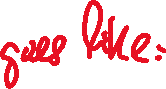 goes like: